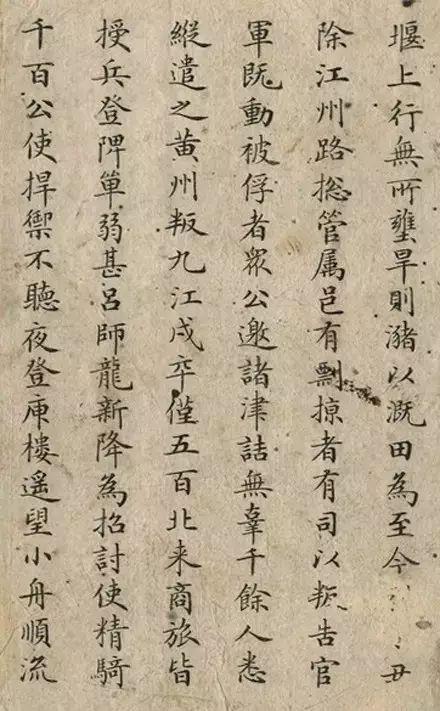 堰上行無所壅旱則瀦以溉田為至今毋
除江州路捴管属邑有剽掠者有司以叛告官
軍既動被俘者眾公邀諸津詰無辜千餘人悉
縱遣之黃州叛九江戍卒僅五百北来商旅皆
授兵登陴單弱甚呂師龍新降為招討使精騎
千百公使捍禦不聽夜登庾樓遥望小舟順流